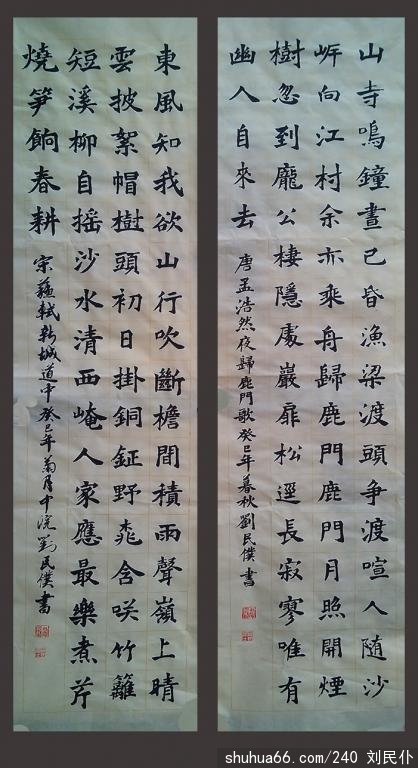 山寺鳴鐘晝已昏漁梁渡頭争渡喧人隨沙
岸向江村余亦乘舟歸鹿門鹿門月照開煙
樹忽到龐公棲隱處巖扉松逕長寂寥唯有
幽人自來去 唐孟浩然夜歸鹿門歌癸巳年暮秋劉民僕書
東風知我欲山行吹斷檐間積雨聲嶺上晴
雲披絮帽樹頭初日掛銅鉦野桃含咲竹籬
短溪柳自摇沙水清西崦人家應最樂煮芹
燒笋餉春耕 宋蘇軾新城道中癸巳年菊月中浣劉民僕書
shuhua66.com/240 刘民仆